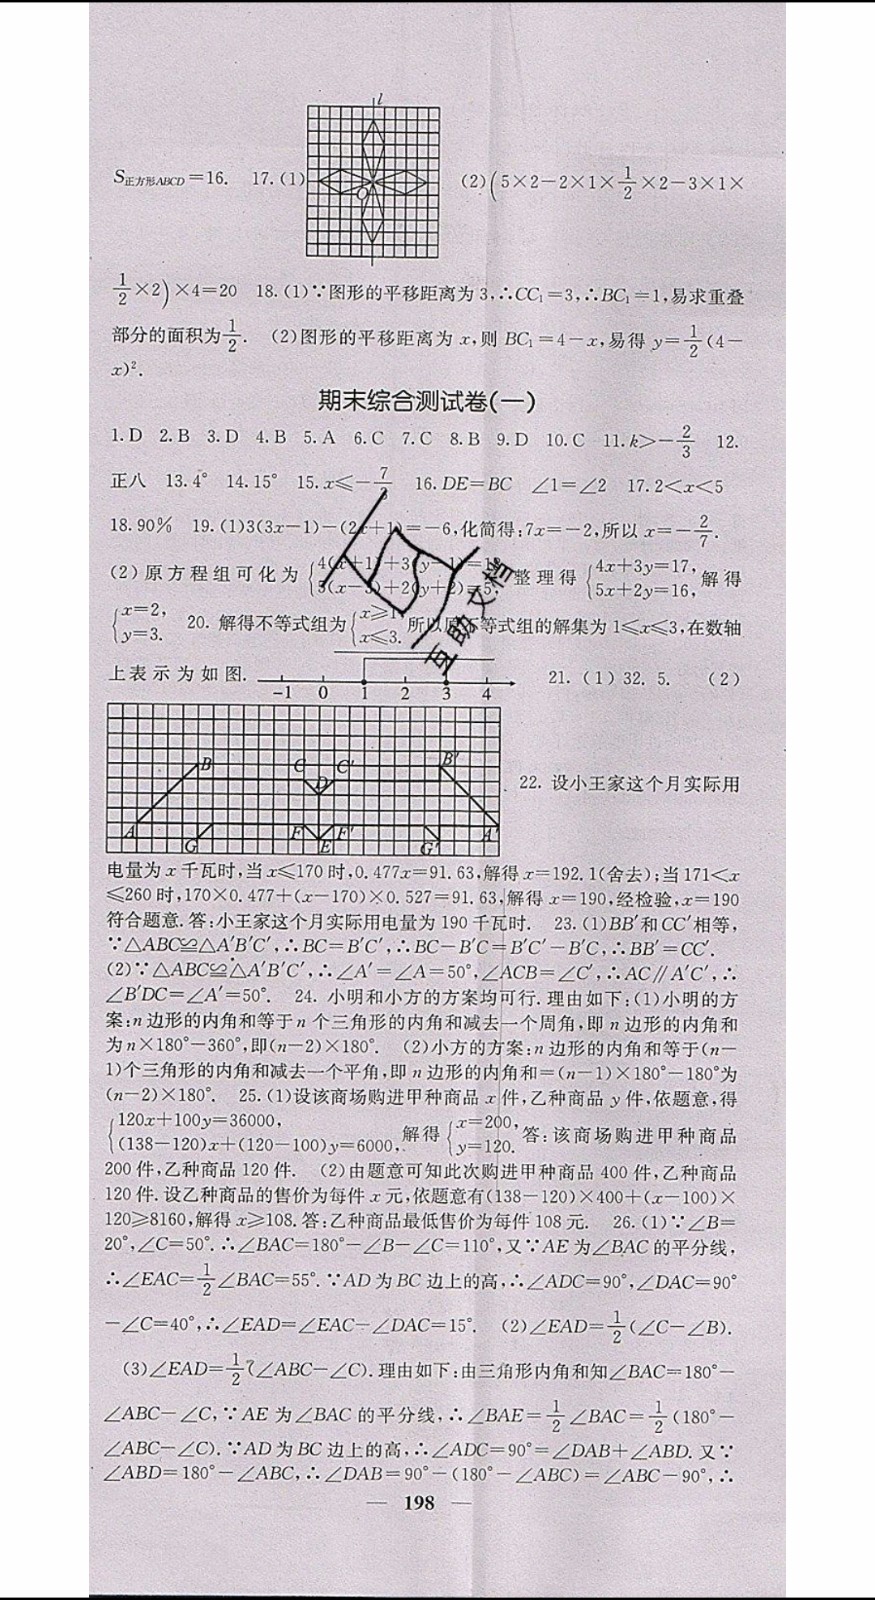 l
S正方形ABCD=16. 17.(1) O (2)(5×2-2×1×1/2×2-3×1×
1/2×2)×4=20 18.(1)∵图形的平移距离为3,∴CC₁=3,∴BC₁=1,易求重叠
部分的面积为1/2. (2)图形的平移距离为x,则BC₁=4-x,易得y=1/2(4-
x)².
期末综合测试卷(一)
1.D 2.B 3.D 4.B 5.A 6.C 7.C 8.B 9.D 10.C 11.k>-2/3 12.
正八 13.4° 14.15° 15.x≤-7/3 16.DE=BC ∠1=∠2 17.2<x<5
18.90% 19.(1)3(3x-1)-(2x+1)=-6,化简得:7x=-2,所以x=-2/7.
(2)原方程组可化为{4(x+1)+3(y-1)= 3(x- )+2(y+2)= 整理得{4x+3y=17, 5x+2y=16,解得
{x=2, y=3. 20.解得不等式组为{x≥1 x≤3.所以原不等式组的解集为1≤x≤3,在数轴
上表示为如图. -1 0 1 2 3 4 21.(1)32.5. (2)
B C C′ D B′
A G F E F′ G′ A′
22.设小王家这个月实际用
电量为x千瓦时,当x≤170时,0.477x=91.63,解得x=192.1(舍去);当171<x
≤260时,170×0.477+(x-170)×0.527=91.63,解得x=190,经检验,x=190
符合题意.答:小王家这个月实际用电量为190千瓦时. 23.(1)BB′和CC′相等,
∵△ABC≌△A′B′C′,∴BC=B′C′,∴BC-B′C=B′C′-B′C,∴BB′=CC′.
(2)∵△ABC≌△A′B′C′,∴∠A′=∠A=50°,∠ACB=∠C′,∴AC∥A′C′,∴
∠B′DC=∠A′=50°. 24.小明和小方的方案均可行.理由如下:(1)小明的方
案:n边形的内角和等于n个三角形的内角和减去一个周角,即n边形的内角和
为n×180°-360°,即(n-2)×180°. (2)小方的方案:n边形的内角和等于(n-
1)个三角形的内角和减去一个平角,即n边形的内角和=(n-1)×180°-180°为
(n-2)×180°. 25.(1)设该商场购进甲种商品x件,乙种商品y件,依题意,得
{120x+100y=36000, (138-120)x+(120-100)y=6000,解得{x=200, y=120.答:该商场购进甲种商品
200件,乙种商品120件. (2)由题意可知此次购进甲种商品400件,乙种商品
120件.设乙种商品的售价为每件x元,依题意有(138-120)×400+(x-100)×
120≥8160,解得x≥108.答:乙种商品最低售价为每件108元. 26.(1)∵∠B=
20°,∠C=50°.∴∠BAC=180°-∠B-∠C=110°,又∵AE为∠BAC的平分线,
∴∠EAC=1/2∠BAC=55°.∵AD为BC边上的高,∴∠ADC=90°,∠DAC=90°
-∠C=40°,∴∠EAD=∠EAC-∠DAC=15°. (2)∠EAD=1/2(∠C-∠B).
(3)∠EAD=1/2(∠ABC-∠C).理由如下:由三角形内角和知∠BAC=180°-
∠ABC-∠C,∵AE为∠BAC的平分线,∴∠BAE=1/2∠BAC=1/2(180°-
∠ABC-∠C).∵AD为BC边上的高,∴∠ADC=90°=∠DAB+∠ABD.又∵
∠ABD=180°-∠ABC,∴∠DAB=90°-(180°-∠ABC)=∠ABC-90°,∴
— 198 —
互助文档